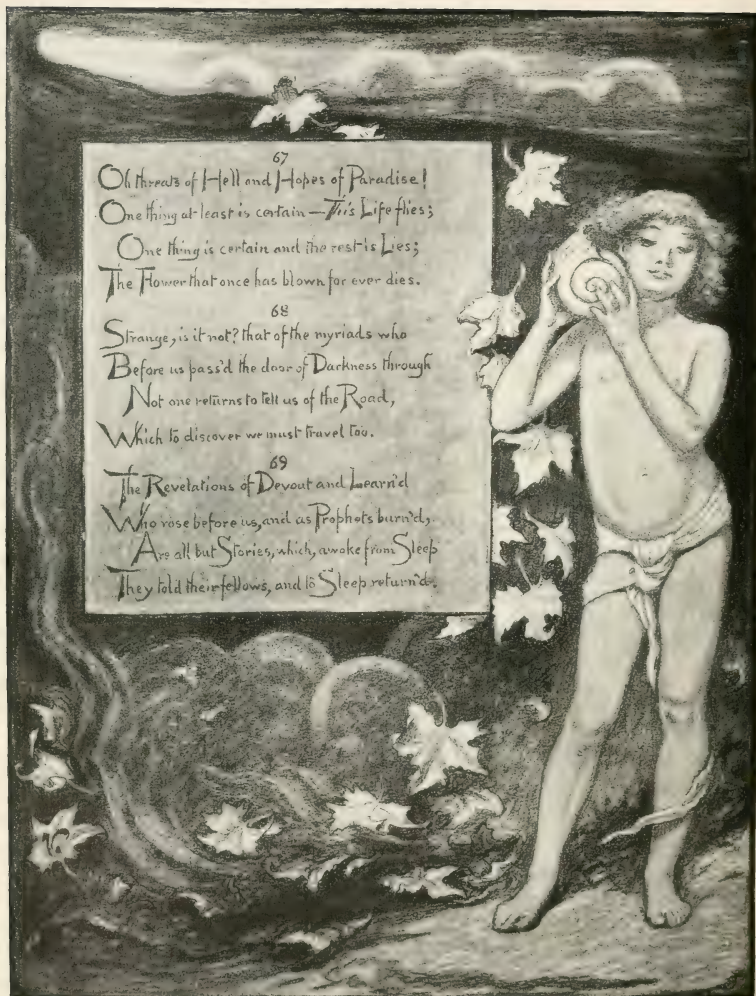 67
Oh threats of Hell and Hopes of Paradise!
One thing at least is certain — This Life flies;
One thing is certain and the rest is Lies;
The Flower that once has blown for ever dies.
68
Strange, is it not? that of the myriads who
Before us pass'd the door of Darkness through
Not one returns to tell us of the Road,
Which to discover we must travel too.
69
The Revelations of Devout and Learn'd
Who rose before us, and as Prophets burn'd,
Are all but Stories, which, awoke from Sleep
They told their fellows, and to Sleep return'd.